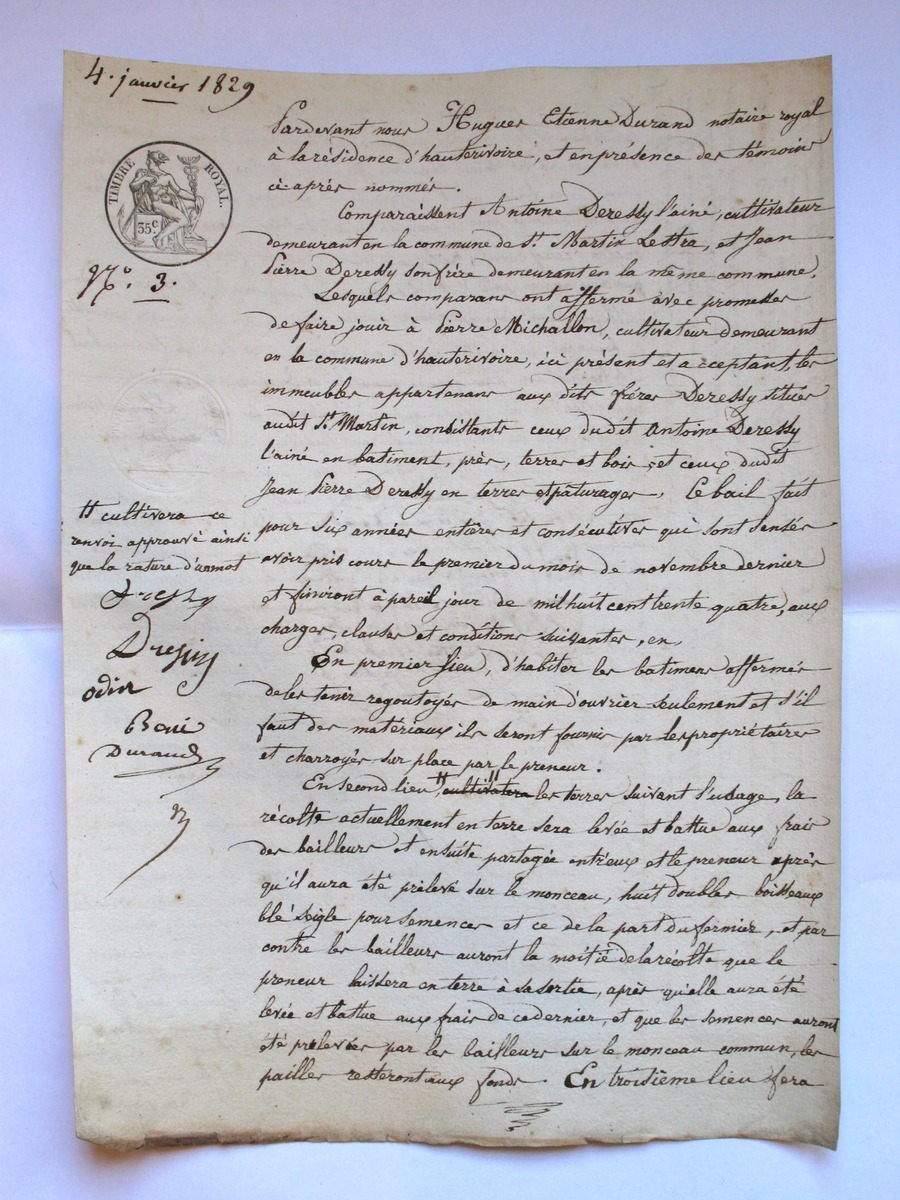 4. janvier 1829
TIMBRE ROYAL.
35 c
N.° 3.
Pardevant nous Hugues Etienne Durand notaire royal
à la résidence d'hauterivoire, et en présence des témoins
ci-après nommés.
Comparaissent Antoine Deressy l'ainé, cultivateur
demeurant en la commune de St. Martin Lestra, et Jean
Pierre Deressy son frère demeurant en la même commune,
Lesquels comparans ont affermé avec promesses
de faire jouir à Pierre Michallon, cultivateur demeurant
en la commune d'hauterivoire, ici présent et acceptant, les
immeubles appartenans aux dits frères Deressy situés
audit St. Martin, consistants ceux dudit Antoine Deressy
l'ainé en batiment, près, terres et bois, et ceux dudit
Jean Pierre Deressy en terres et pâturages. Le bail fait
pour six années entières et consécutives qui sont sensés
avoir pris cours le premier du mois de novembre dernier
et finiront à pareil jour de mil huit cent trente quatre, aux
charges, clauses et conditions suivantes,
En premier lieu, d'habiter les batimens affermés
de les tenir regoutoyés de main d'ouvrier seulement et s'il
faut des matériaux ils seront fournis par les propriétaires
et charroyés sur place par le preneur.
En second lieu, cultivatera les terres suivant l'usage, la
récolte actuellement en terre sera levée et battue aux frais
des bailleurs et ensuite partagée entr'eux et le preneur après
qu'il aura été prélevé sur le monceau, huit doubles boisseaux
blé seigle pour semences et ce de la part du fermier, et par
contre les bailleurs auront la moitié de la récolte que le
preneur laissera en terre à sa sortie, après qu'elle aura été
levée et battue aux frais de ce dernier, et que les semences auront
été prélevées par les bailleurs sur le monceau commun, les
pailles resteront aux fonds. En troisième lieu fera
cultivera ce
renvoi approuvé ainsi
que la rature d'un mot
odin
Durand